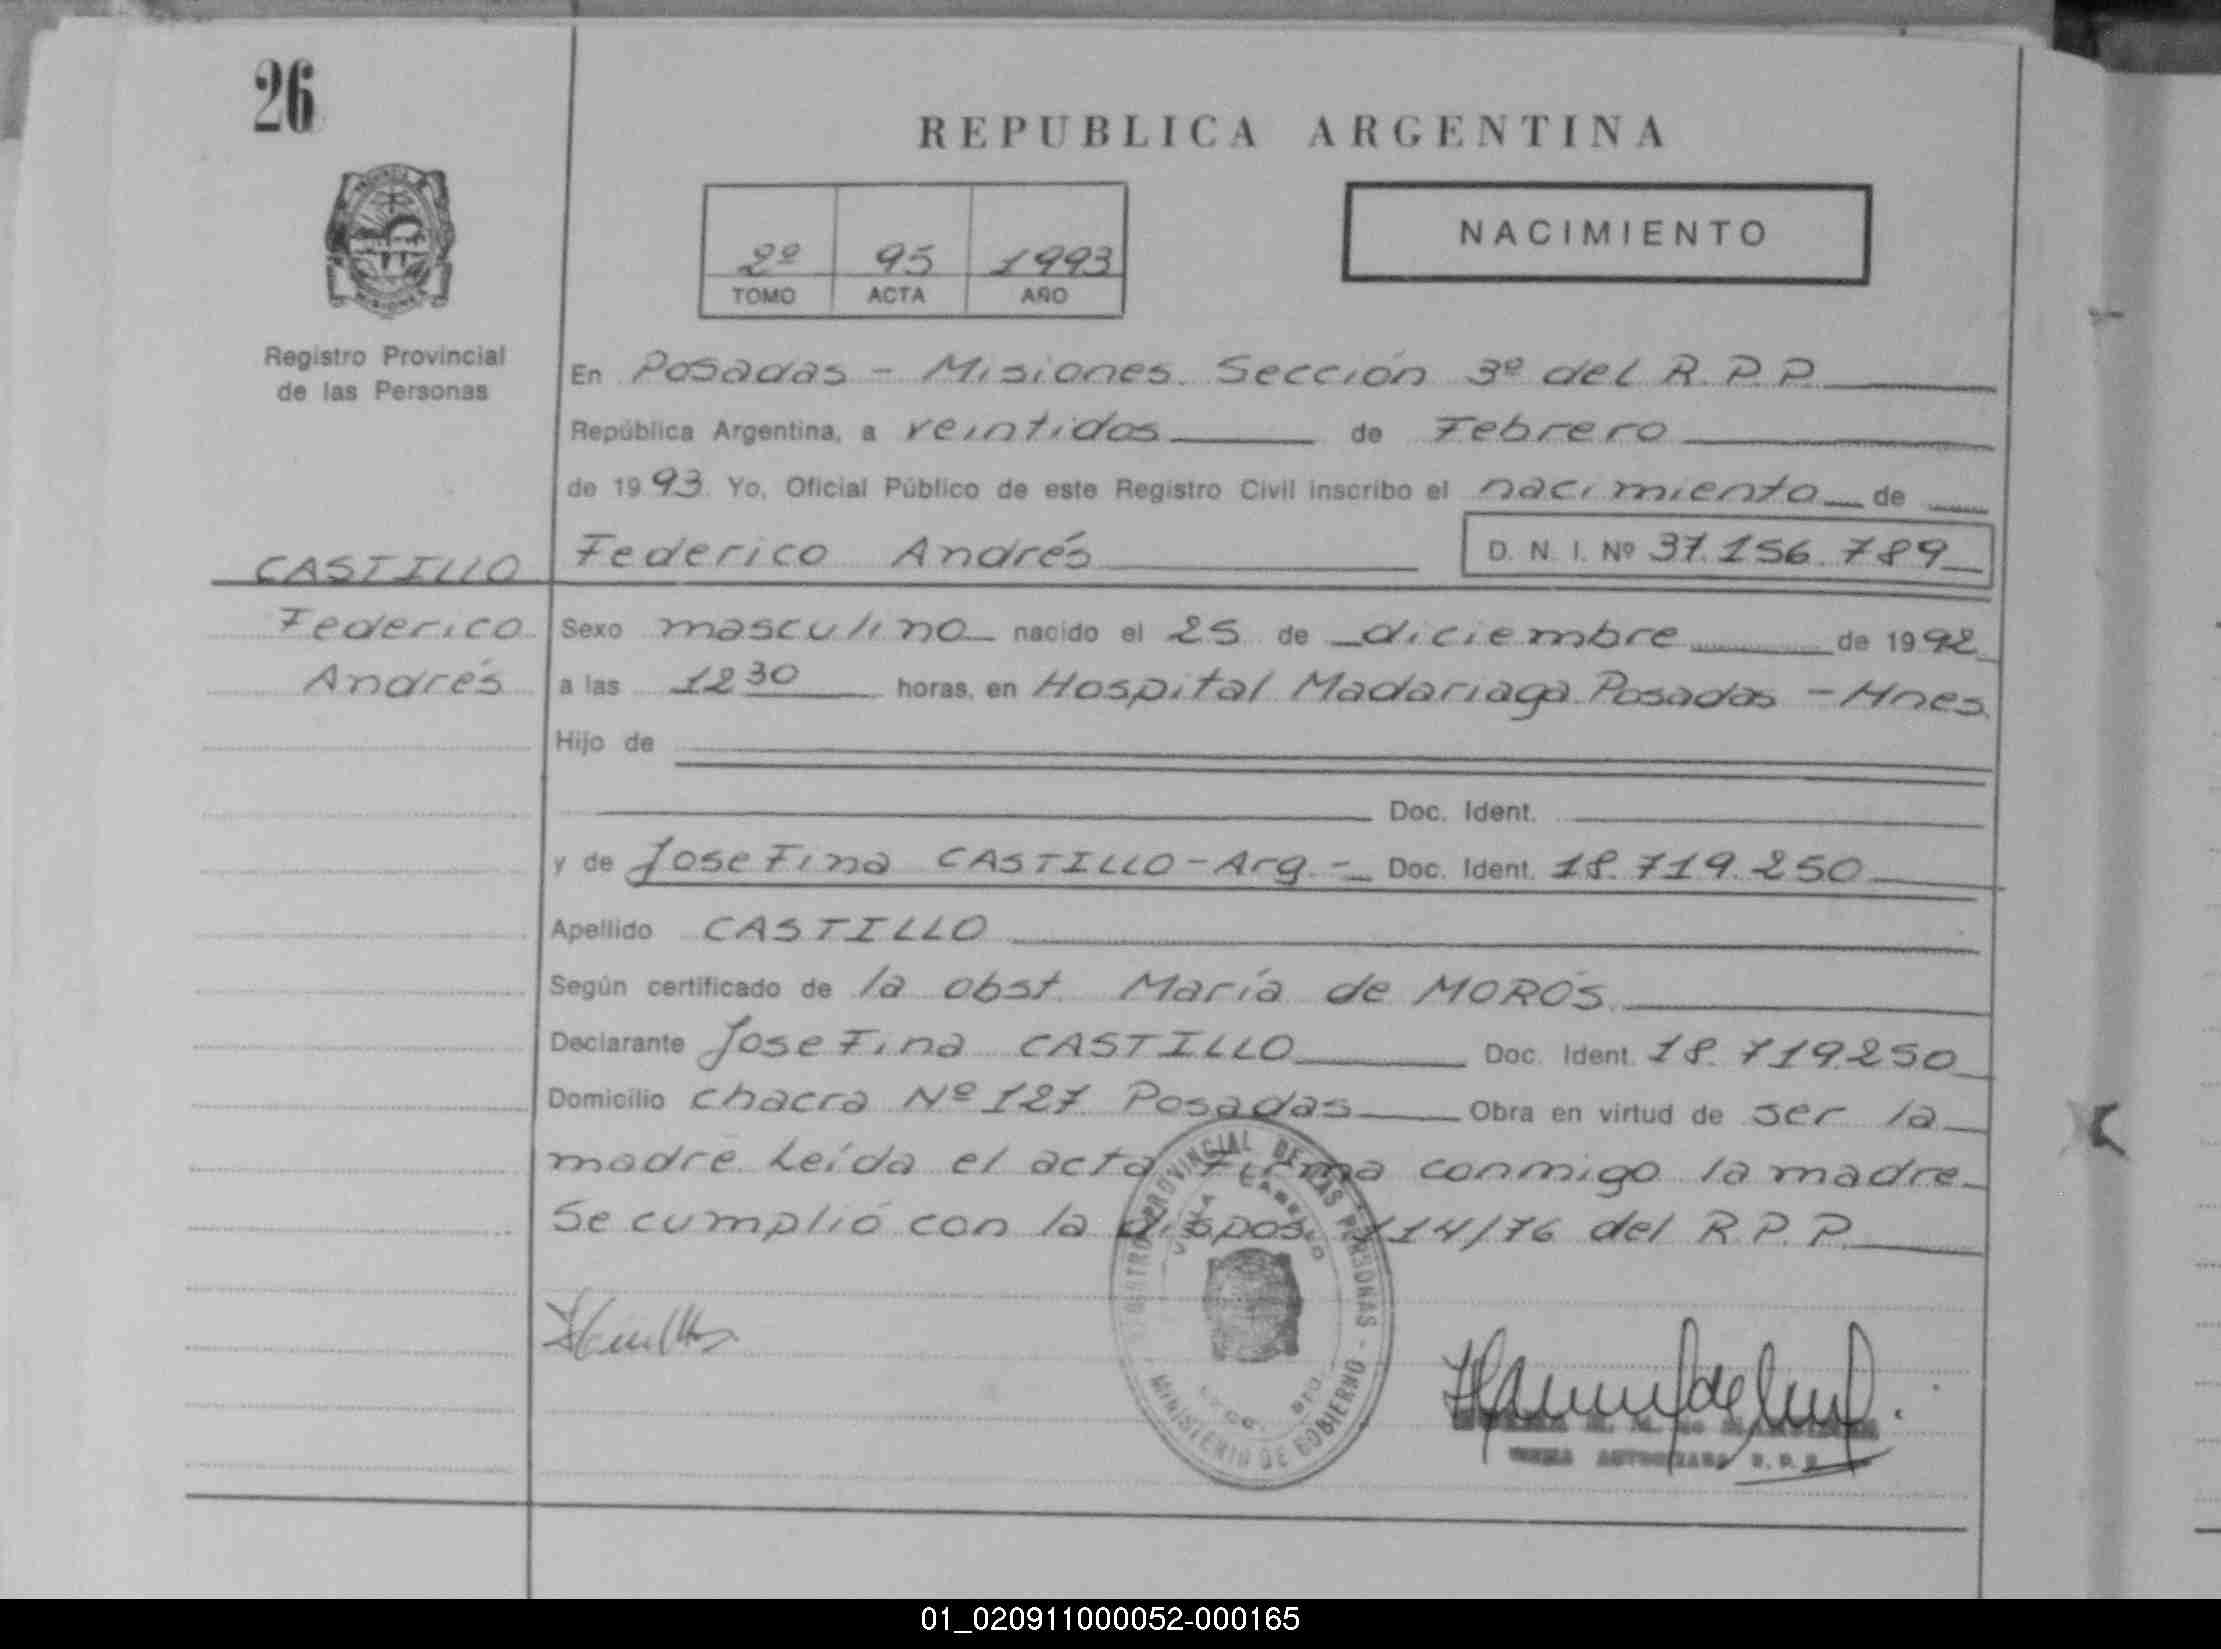 26
REPUBLICA ARGENTINA
NACIMIENTO
2º 95 1993
TOMO ACTA AÑO
Registro Provincial
de las Personas
En Posadas - Misiones. Sección 3º del R.P.P.
República Argentina, a veintidos de Febrero
de 1993. Yo, Oficial Público de este Registro Civil inscribo el nacimiento de
CASTILLO Federico Andrés D. N. I. Nº 37.156.789
Federico Sexo masculino nacido el 25 de diciembre de 1992
Andrés a las 12 30 horas, en Hospital Madariaga Posadas - Mnes.
Hijo de
Doc. Ident.
y de Josefina CASTILLO - Arg. - Doc. Ident. 18.719.250
Apellido CASTILLO
Según certificado de la obst. María de MOROS
Declarante Josefina CASTILLO Doc. Ident. 18.719.250
Domicilio chacra Nº 127 Posadas Obra en virtud de ser la
madre. Leída el acta firma conmigo la madre.
Se cumplió con la dispos. 114/76 del R.P.P.
REGISTRO PROVINCIAL DE LAS PERSONAS - MINISTERIO DE GOBIERNO -
VILLA CABELLO
FIRMA AUTORIZADA R. P. P.
01_020911000052-000165